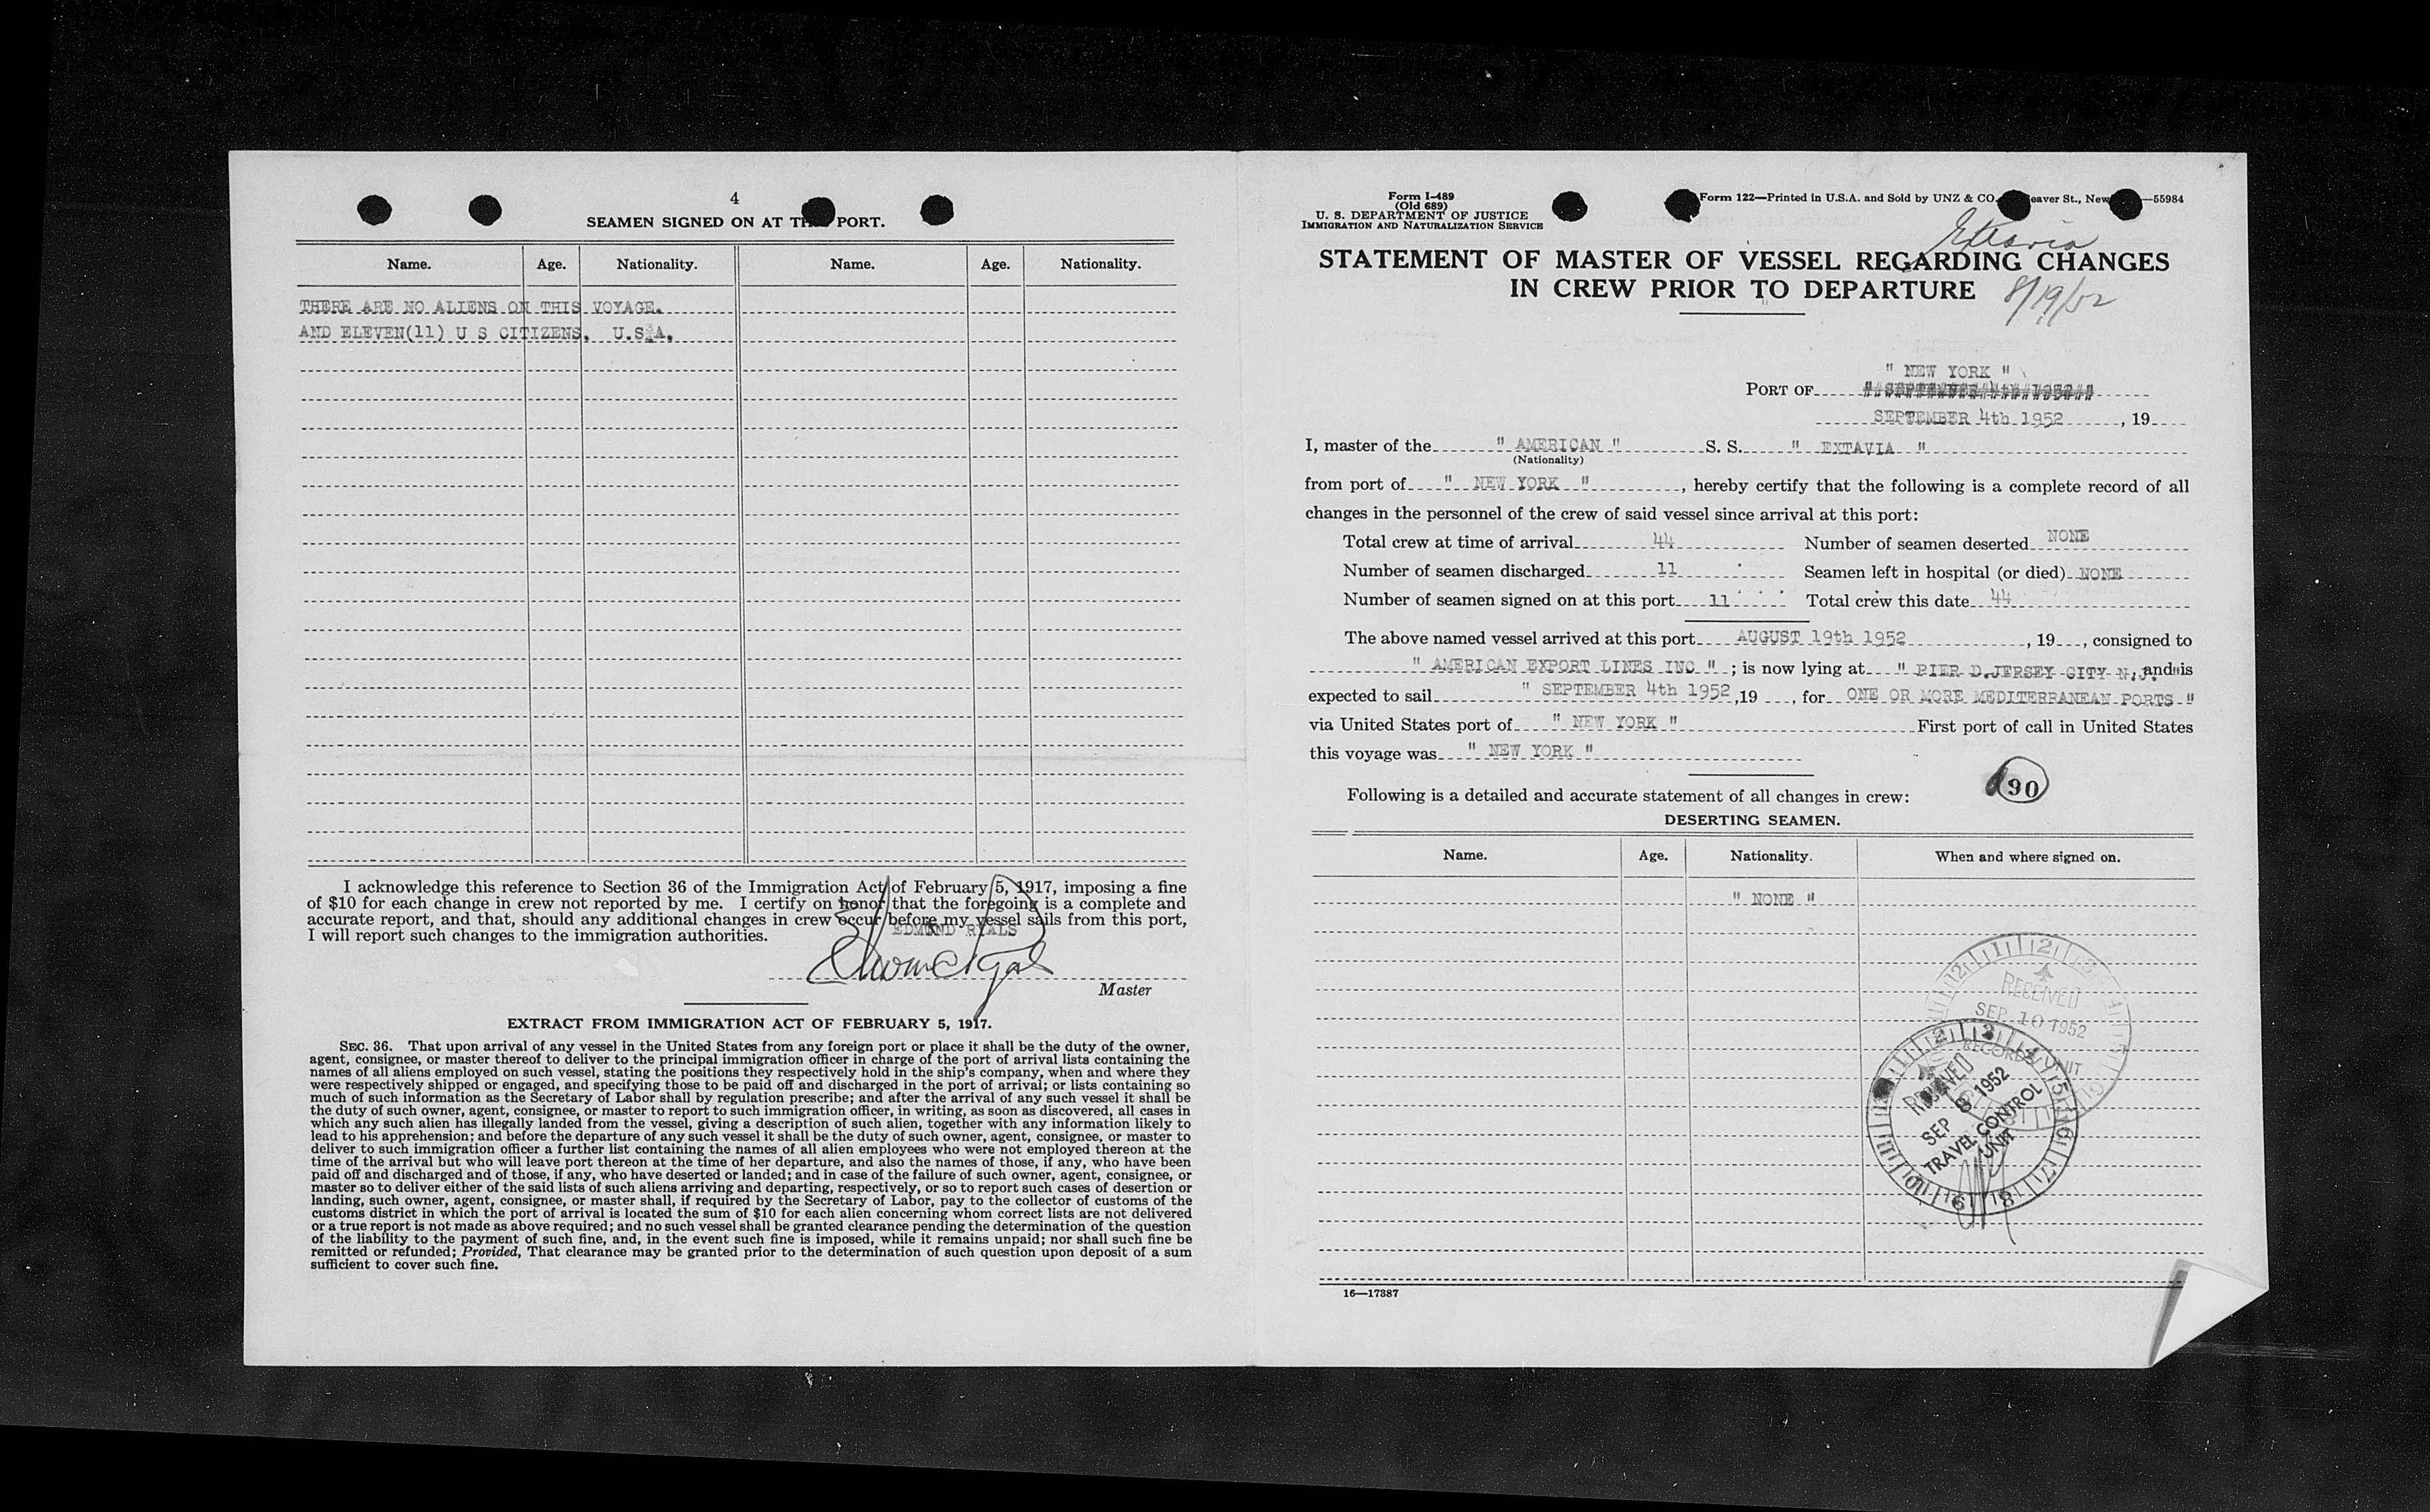 4
SEAMEN SIGNED ON AT TH PORT.
Name. Age. Nationality. Name. Age. Nationality.
THERE ARE NO ALIENS ON THIS VOYAGE.
AND ELEVEN(11) U S CITIZENS. U.S.A.
I acknowledge this reference to Section 36 of the Immigration Act of February 5, 1917, imposing a fine
of $10 for each change in crew not reported by me. I certify on honor that the foregoing is a complete and
accurate report, and that, should any additional changes in crew occur before my vessel sails from this port,
I will report such changes to the immigration authorities.
EDMUND RYALS
Master
EXTRACT FROM IMMIGRATION ACT OF FEBRUARY 5, 1917.
SEC. 36. That upon arrival of any vessel in the United States from any foreign port or place it shall be the duty of the owner,
agent, consignee, or master thereof to deliver to the principal immigration officer in charge of the port of arrival lists containing the
names of all aliens employed on such vessel, stating the positions they respectively hold in the ship's company, when and where they
were respectively shipped or engaged, and specifying those to be paid off and discharged in the port of arrival; or lists containing so
much of such information as the Secretary of Labor shall by regulation prescribe; and after the arrival of any such vessel it shall be
the duty of such owner, agent, consignee, or master to report to such immigration officer, in writing, as soon as discovered, all cases in
which any such alien has illegally landed from the vessel, giving a description of such alien, together with any information likely to
lead to his apprehension; and before the departure of any such vessel it shall be the duty of such owner, agent, consignee, or master to
deliver to such immigration officer a further list containing the names of all alien employees who were not employed thereon at the
time of the arrival but who will leave port thereon at the time of her departure, and also the names of those, if any, who have been
paid off and discharged and of those, if any, who have deserted or landed; and in case of the failure of such owner, agent, consignee, or
master so to deliver either of the said lists of such aliens arriving and departing, respectively, or so to report such cases of desertion or
landing, such owner, agent, consignee, or master shall, if required by the Secretary of Labor, pay to the collector of customs of the
customs district in which the port of arrival is located the sum of $10 for each alien concerning whom correct lists are not delivered
or a true report is not made as above required; and no such vessel shall be granted clearance pending the determination of the question
of the liability to the payment of such fine, and, in the event such fine is imposed, while it remains unpaid; nor shall such fine be
remitted or refunded; Provided, That clearance may be granted prior to the determination of such question upon deposit of a sum
sufficient to cover such fine.
Form I-489
(Old 689)
U. S. DEPARTMENT OF JUSTICE
IMMIGRATION AND NATURALIZATION SERVICE
Form 122—Printed in U.S.A. and Sold by UNZ & CO. eaver St., New —55984
Extavia
STATEMENT OF MASTER OF VESSEL REGARDING CHANGES
IN CREW PRIOR TO DEPARTURE
8/19/52
" NEW YORK "
PORT OF
SEPTEMBER 4th 1952, 19
I, master of the " AMERICAN " S. S. " EXTAVIA "
(Nationality)
from port of " NEW YORK ", hereby certify that the following is a complete record of all
changes in the personnel of the crew of said vessel since arrival at this port:
Total crew at time of arrival 44 Number of seamen deserted NONE
Number of seamen discharged 11 Seamen left in hospital (or died) NONE
Number of seamen signed on at this port 11 Total crew this date 44
The above named vessel arrived at this port AUGUST 19th 1952, 19 , consigned to
" AMERICAN EXPORT LINES INC "; is now lying at " PIER D.JERSEY CITY N.J." and is
expected to sail " SEPTEMBER 4th 1952,19 , for ONE OR MORE MEDITERRANEAN PORTS "
via United States port of " NEW YORK " First port of call in United States
this voyage was " NEW YORK "
90
Following is a detailed and accurate statement of all changes in crew:
DESERTING SEAMEN.
Name. Age. Nationality. When and where signed on.
" NONE "
RECEIVED
SEP 10 1952
RECORDS UNIT
RECEIVED
SEP 8 1952
TRAVEL CONTROL
UNIT
16—17387